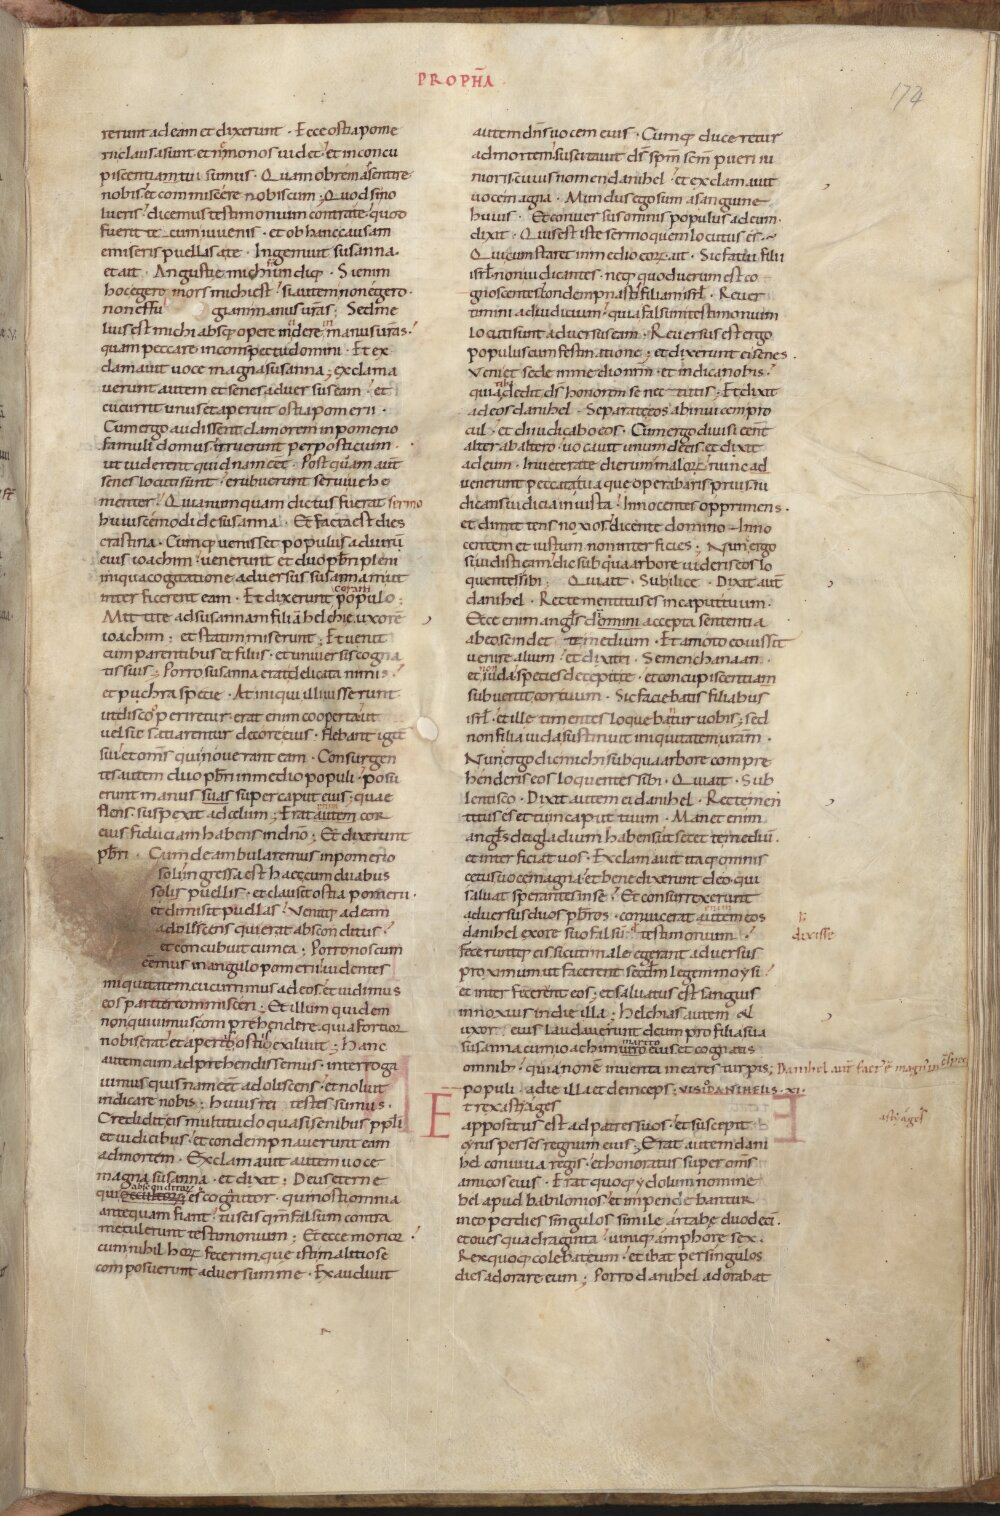 PROPHA
174
rerunt ad eam et dixerunt · Ecce ostia pome
rii clausa sunt et nemo nos videt et in concu
piscentia tui sumus · Quam obrem assentire
nobis et commiscere nobiscum · Quod si no
lueris dicemus testimonium contra te quod
fuerit tecum iuvenis · et ob hanc causam
emiseris puellas a te · Ingemuit susanna
et ait · Angustie michi undique · Si enim
hoc egero mors michi est si autem non egero ·
non effu giam manus vras · Sed me
lius est michi absque opere incidere in manus vras ·
quam peccare in conspectu domini · Et ex
clamavit voce magna susanna ; exclama
verunt autem et senes adversus eam · et
cucurrit unus et aperuit ostia pomerii ·
Cum ergo audissent clamorem in pomerio
famuli domus irruerunt per posticum ·
ut viderent quidnam eet · Postquam aut
senes locuti sunt erubuerunt servi vehe
menter · Quia nunquam dictus fuerat sermo
huiuscemodi de susanna · Et facta est dies
crastina · Cumque venisset populus ad virum
eius ioachim venerunt et duo pbri pleni
iniqua cogitatione adversus susannam ut
interficerent eam · Et dixerunt coram populo ;
Mittite ad susannam filia helchie uxore
ioachim ; et statim miserunt ; Et venit
cum parentibus et filiis · et universis cogna
tis suis ; Porro susanna erat delicata nimis
et puchra specie · At iniqui illi iusserunt
ut discooperiretur erat enim cooperta ut
vel sic satiarentur decore eius · flebant igit
sui et oms qui noverant eam · Consurgen
tes autem duo pbri in medio populi posu
erunt manus suas super caput eius ; que
flens suspexit ad celum ; Erat autem cor
eius fiduciam habens in dno ; Et dixerunt
pbri · Cum deambularemus in pomerio
soli ingressa est hec cum duabus
solis puellis · et clausit ostia pomerii ·
et dimisit puellas Venitque ad eam
adolescens qui erat absconditus
et concubuit cum ea ; Porro nos cum
eemus in angulo pomerii videntes
iniquitatem cucurrimus ad eos et vidimus
eos pariter commisceri ; Et illum quidem
non quivimus comprehendere quia fortior
nobis erat et apertis ostiis exilivit ; Hanc
autem cum adprehendissemus · interroga
vimus quisnam eet adoliscens et noluit
indicare nobis ; huius rei testes sumus ·
Credidit eis multitudo quasi senibus ppli
et iudicibus et condempnaverunt eam
ad mortem · Exclamavit autem voce
magna susanna · et dixit ; Deus eterne
qui absconditorum es cognitor · qui nosti omnia
antequam fiant tu scis qm falsum contra
me tulerunt testimonium ; Et ecce morior
cum nihil horum fecerim que isti malitiose
composuerunt adversum me · Exaudivit
autem dns vocem eius · Cumque duceretur
ad mortem suscitavit ds spm scm pueri iu
nioris cuius nomen danihel et exclamavit
voce magna · Mundus ego sum a sanguine
huius · Et conversus omnis populus ad eum ·
dixit · Quis est iste sermo quem locutus es
Qui cum staret in medio eorum ait · Sic fatui filii
isrl non iudicantes · neque quod verum est co
gnoscentes condempnastis filiam isrl · Rever
timini ad iudicium quia falsum testimonium
locuti sunt adversus eam · Reversus est ergo
populus cum festinatione ; et dixerunt ei senes ·
Veni et sede in medio nrm · et indica nobis
quia tibi dedit ds honorem senectutis ; Et dixit
ad eos danihel · Separate eos ab invicem pro
cul · et diiudicabo eos · Cum ergo divisi eent
alter ab altero vocavit unum de eis et dixit
ad eum · Inveterate dierum malorum nunc ad
venerunt peccata tua que operabaris prius iu
dicans iudicia iniusta innocentes opprimens ·
et dimittens noxios dicente domino Inno
centem et iustum non interficies ; Nunc ergo
si vidisti eam dic sub qua arbore videris eos lo
quentes sibi ; Qui ait · Sub ilice · Dixit aut
danihel · Recte mentitus es in caput tuum ·
Ecce enim angls domini accepta sententia
ab eo scindet te medium · Et amoto eo iussit
venire alium et dixit ei · Semen chanaan ·
et non iuda species decepit te · et concupiscentia
subvertit cor tuum · Sic faciebatis filiabus
isrl et ille timentes loquebantur vobis ; sed
non filia iuda sustinuit iniquitatem vram ·
Nunc ergo dic michi sub qua arbore compre
henderis eos loquentes sibi · Qui ait · Sub
lentisco · Dixit autem ei danihel · Recte men
titus es et tu in caput tuum · Manet enim
angls dei gladium habens ut secet te mediu ·
et interficiat vos · Exclamavit itaque omnis
cetus voce magna et benedixerunt deo qui
salvat sperantes in se Et consurrexerunt
adversus duos pbros · convicerat enim eos
danihel ex ore suo falsu testimonium
feceruntque eis sicuti male egerant adversus
proximum ut facerent secdm legem moysi
et interfecerent eos ; et salvatus est sanguis
innoxius in die illa ; helchias autem et
uxor eius laudaverunt deum pro filia sua
susanna cum ioachim marito eius et cognatis
omnibus quia non e inventa in ea res turpis ; Danihel aut fact e magn in cspec
populi a die illa et deinceps ; VISIO DANIHELIS · XI ·
Et rex astiages
appositus est ad patres suos et suscepit
cyrus perses regnum eius ; Erat autem dani
hel conviva regis et honoratus super oms
amicos eius · Erat quoque ydolum nomine
bel apud babilonios et impendebantur
in eo per dies singulos simile artabe duodeci
et oves quadraginta vinique amphore sex ·
Rex quoque colebat eum et ibat per singulos
dies adorare eum ; Porro danihel adorabat
dixisse
astiages